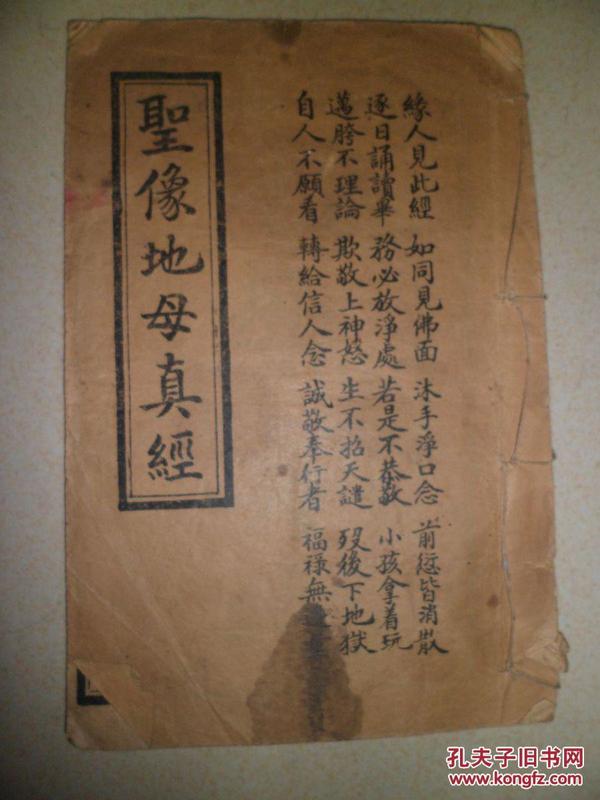 緣人見此經 如同見佛面 沐手淨口念 前愆皆消散
逐日誦讀畢 務必放淨處 若是不恭敬 小孩拿着玩
邁胯不理論 欺敬上神怒 生不招天譴 歿後下地獄
自人不願看 轉給信人念 誠敬奉行者 福祿無
聖像地母真經
孔夫子旧书网
www.kongfz.com